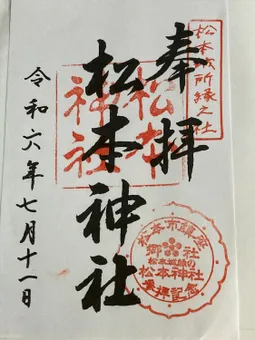 奉拝
松本城所縁之社
松本神社
松本神社
令和六年七月十一日
松本市鎮座
郷社
松本城鎮の
松本神社
参拝記念